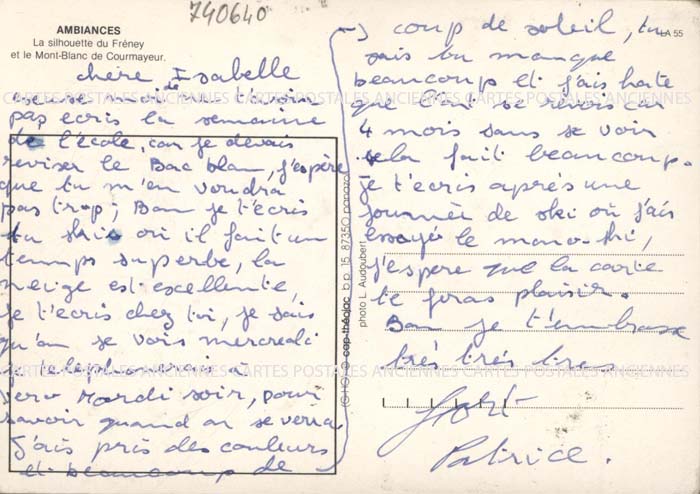 740640
AMBIANCES
La silhouette du Fréney
et le Mont-Blanc de Courmayeur.
chère Isabelle
excuse moi de ne t'avoir
pas écris la semaine
de l'école, car je devais
reviser le Bac blan, j'espère
que tu m'en voudra
pas trop, Bon je t'écris
du ski où il fait un
temps superbe, la
neige est excellente
je t'écris chez toi, je sais
qu'on se vois mercredi
je téléphonerai à
Vero Mardi soir, pour
savoir quand on se verra
J'ais pris des couleurs
et beaucoup de
coup de soleil, tu
sais tu manque
beaucoup et j'ais hate
que l'on se revois car
4 mois sans se voir
cela fait beaucoup.
je t'écris aprés une
journée de ski où j'ais
essayé le mono-ski,
j'espere que la carte
te feras plaisir.
Bon je t'embrasse
trés trés tres
fort
Patrice.
LA 55
cap-théojac b.p. 15 87350 panazol
photo L. Audoubert
CARTES POSTALES ANCIENNES CARTES POSTALES ANCIENNES CARTES POSTALES ANCIENNES
CARTES POSTALES ANCIENNES CARTES POSTALES ANCIENNES CARTES POSTALES ANCIENNES